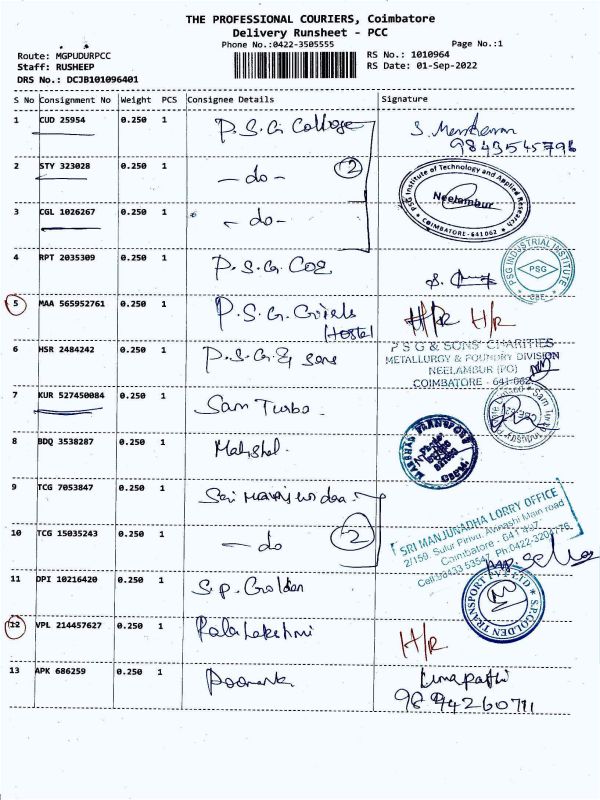 THE PROFESSIONAL COURIERS, Coimbatore
Delivery Runsheet - PCC
Phone No.:0422-3505555
Page No.:1
Route: MGPUDURPCC
RS No.: 1010964
Staff: RUSHEEP
RS Date: 01-Sep-2022
DRS No.: DCJB101096401
S No Consignment No Weight PCS Consignee Details Signature
1 CUD 25954 0.250 1 P.S.G College
9843545796
2 STY 323028 0.250 1 - do - 2
PSG Institute of Technology and Applied Research
Neelambur
COIMBATORE - 641 062
3 CGL 1026267 0.250 1 - do -
4 RPT 2035309 0.250 1 P.S.G. COE
PSG INDUSTRIAL INSTITUTE
PSG
CBE
5 MAA 565952761 0.250 1 P.S.G. Girls
Hostel
H/R H/R
6 HSR 2484242 0.250 1 P.S.G & Sons
PSG & SONS' CHARITIES
METALLURGY & FOUNDRY DIVISION
NEELAMBUR (PO)
COIMBATORE - 641 062
7 KUR 527450084 0.250 1 Sam Turbo
8 BDQ 3538287 0.250 1 Mahshal
9 TCG 7053847 0.250 1 Sri
10 TCG 15035243 0.250 1 - do 2
SRI MANJUNADHA LORRY OFFICE
2/159, Sulur Pirivu, Avinashi Main road
Coimbatore - 641 407
11 DPI 10216420 0.250 1 S.P. Golden
S.P.GOLDEN TRANSPORT PVT LTD
12 VPL 214457627 0.250 1 Balalakshmi
H/R
13 APK 686259 0.250 1
Umapathi
9894260711